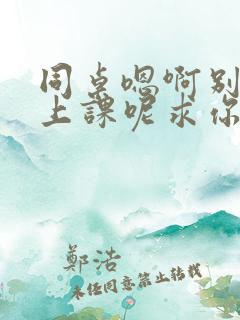 同桌嗯啊别
上課呢求你
鄭浩
未经同意禁止转载